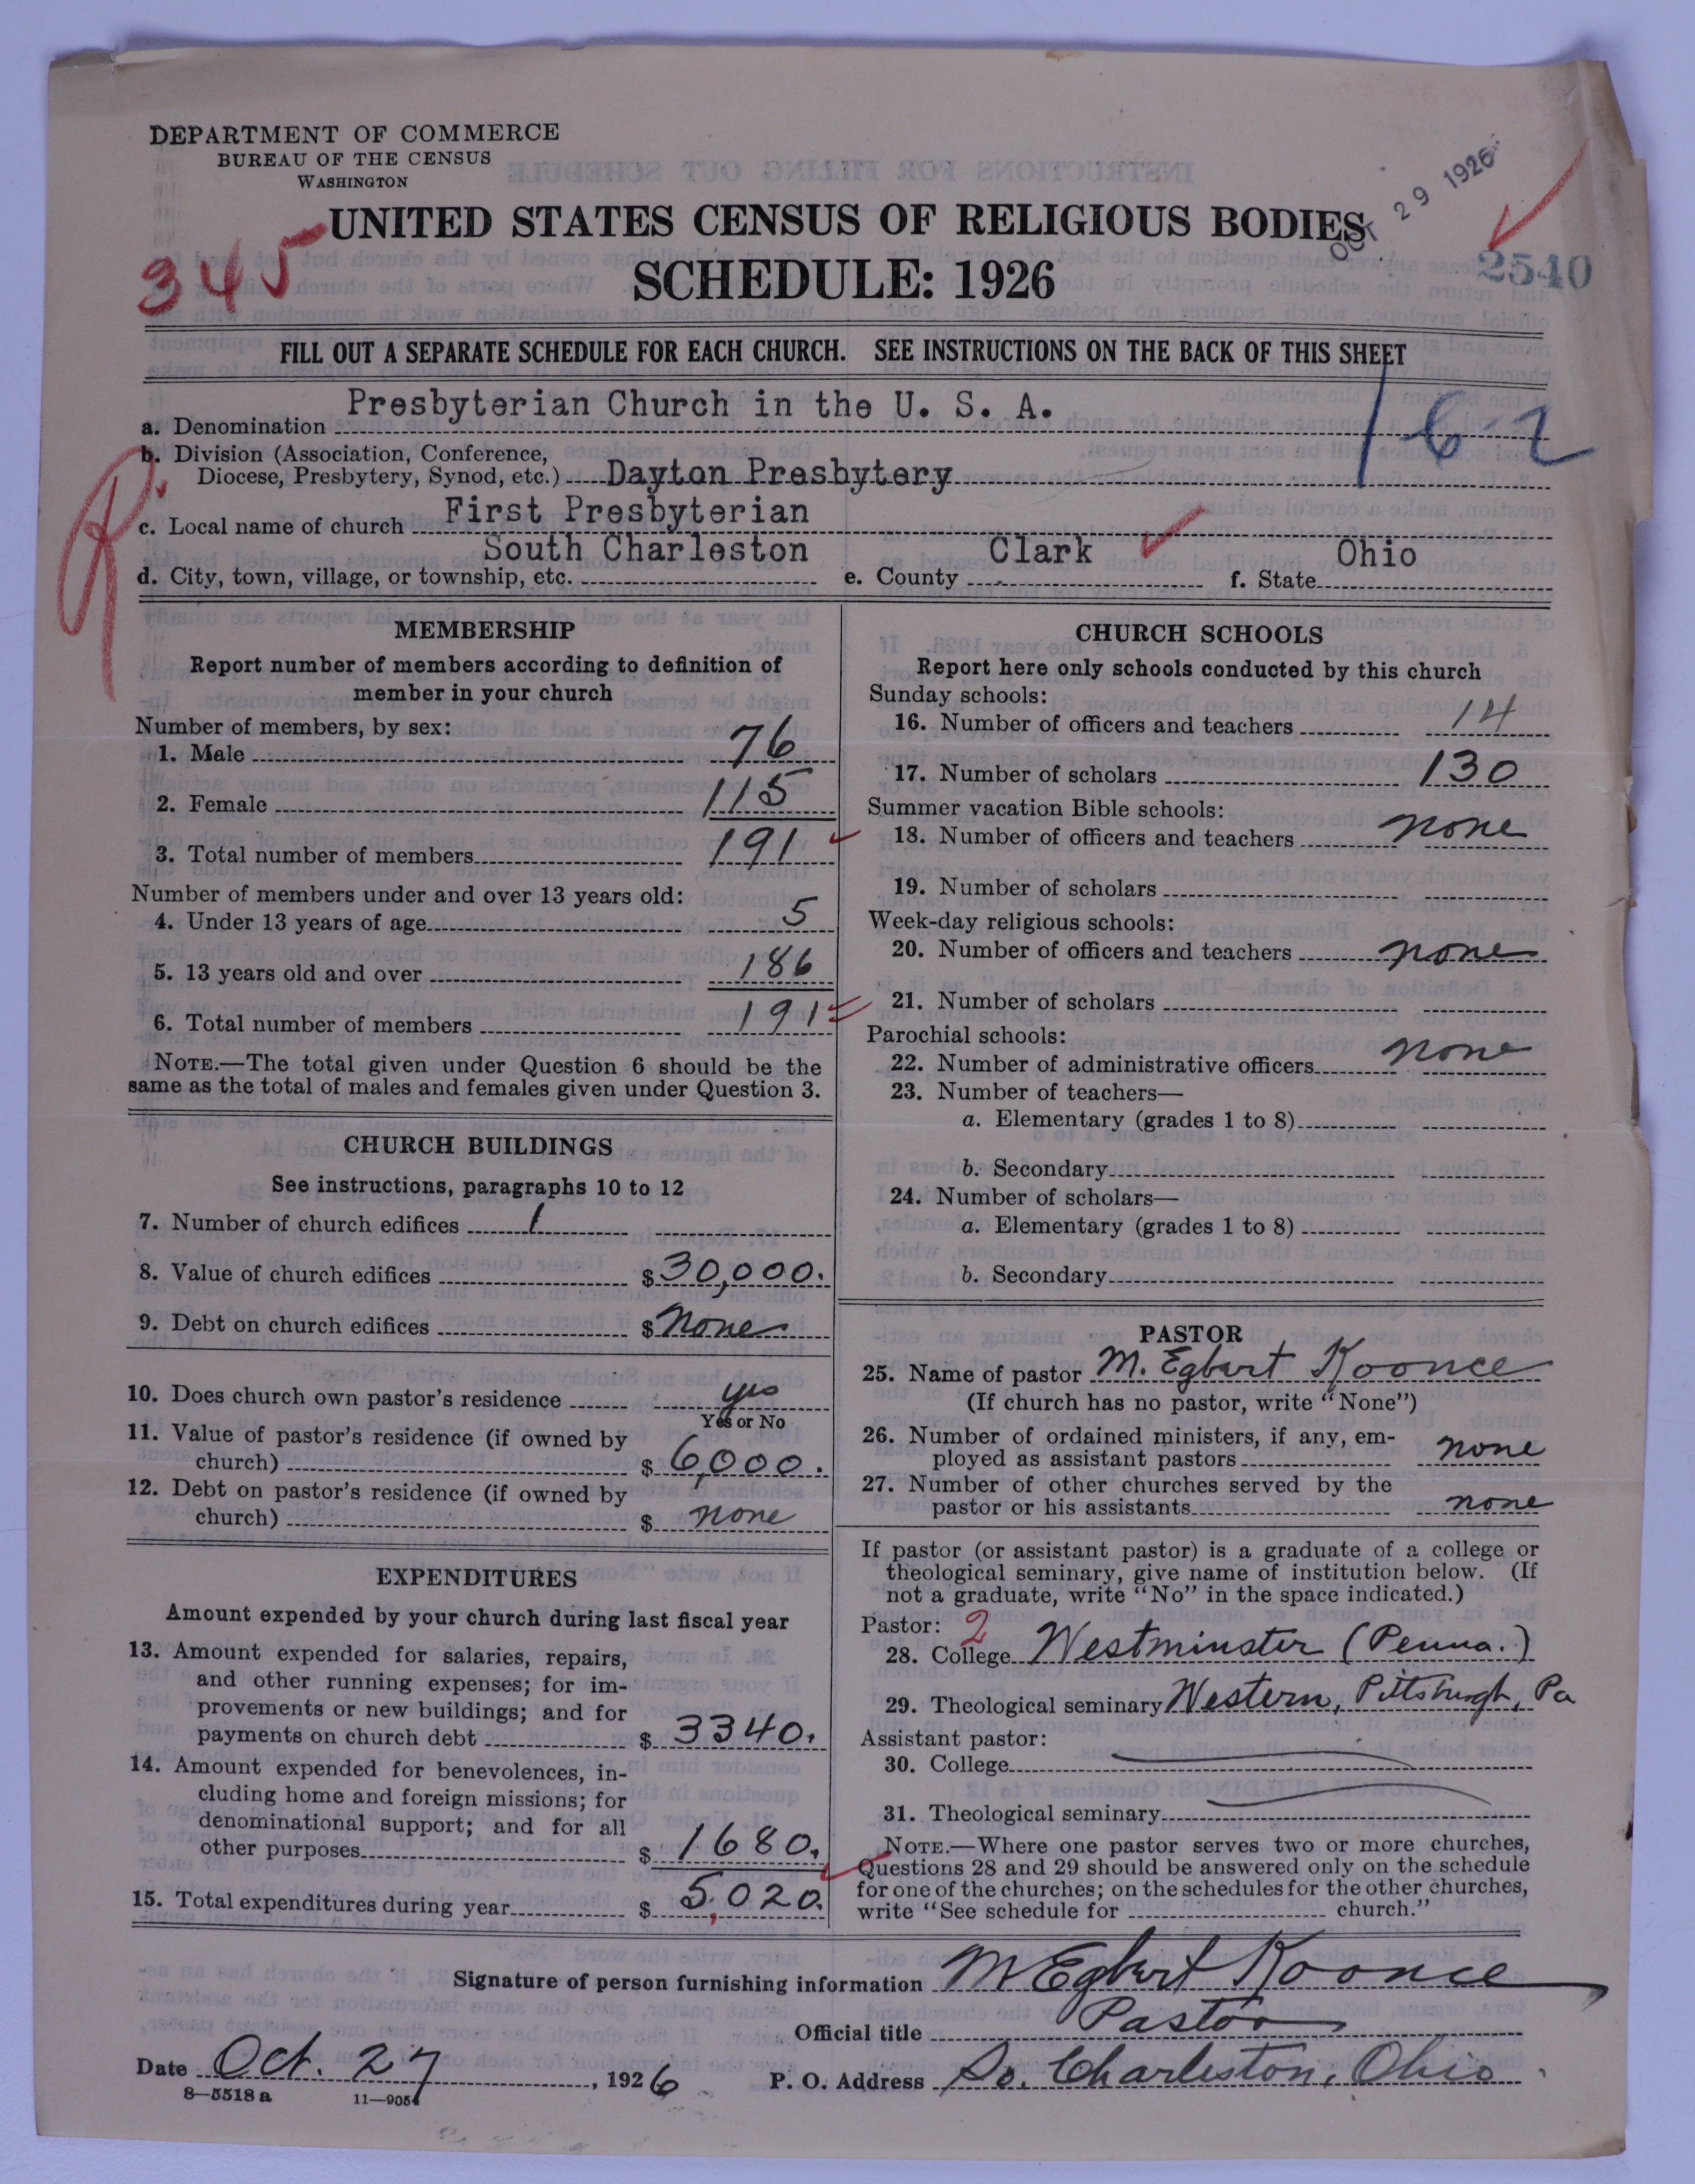 DEPARTMENT OF COMMERCE
BUREAU OF THE CENSUS
WASHINGTON
OCT 29 1926
UNITED STATES CENSUS OF RELIGIOUS BODIES
345
SCHEDULE: 1926
2540
FILL OUT A SEPARATE SCHEDULE FOR EACH CHURCH. SEE INSTRUCTIONS ON THE BACK OF THIS SHEET
a. Denomination Presbyterian Church in the U. S. A.
162
b. Division (Association, Conference,
Diocese, Presbytery, Synod, etc.) Dayton Presbytery
c. Local name of church First Presbyterian
d. City, town, village, or township, etc. South Charleston e. County Clark f. State Ohio
MEMBERSHIP
Report number of members according to definition of
member in your church
Number of members, by sex:
1. Male 76
2. Female 115
3. Total number of members 191
Number of members under and over 13 years old:
4. Under 13 years of age 5
5. 13 years old and over 186
6. Total number of members 191
NOTE.—The total given under Question 6 should be the
same as the total of males and females given under Question 3.
CHURCH BUILDINGS
See instructions, paragraphs 10 to 12
7. Number of church edifices 1
8. Value of church edifices $ 30,000.
9. Debt on church edifices $ none
10. Does church own pastor's residence yes
Yes or No
11. Value of pastor's residence (if owned by
church) $ 6,000.
12. Debt on pastor's residence (if owned by
church) $ none
EXPENDITURES
Amount expended by your church during last fiscal year
13. Amount expended for salaries, repairs,
and other running expenses; for im-
provements or new buildings; and for
payments on church debt $ 3340.
14. Amount expended for benevolences, in-
cluding home and foreign missions; for
denominational support; and for all
other purposes $ 1680.
15. Total expenditures during year $ 5,020.
CHURCH SCHOOLS
Report here only schools conducted by this church
Sunday schools:
16. Number of officers and teachers 14
17. Number of scholars 130
Summer vacation Bible schools:
18. Number of officers and teachers none
19. Number of scholars
Week-day religious schools:
20. Number of officers and teachers none
21. Number of scholars
Parochial schools:
22. Number of administrative officers none
23. Number of teachers—
a. Elementary (grades 1 to 8)
b. Secondary
24. Number of scholars—
a. Elementary (grades 1 to 8)
b. Secondary
PASTOR
25. Name of pastor M. Egbert Koonce
(If church has no pastor, write "None")
26. Number of ordained ministers, if any, em-
ployed as assistant pastors none
27. Number of other churches served by the
pastor or his assistants none
If pastor (or assistant pastor) is a graduate of a college or
theological seminary, give name of institution below. (If
not a graduate, write "No" in the space indicated.)
Pastor: 2
28. College Westminster (Penna.)
29. Theological seminary Western, Pittsburgh, Pa
Assistant pastor:
30. College
31. Theological seminary
NOTE.—Where one pastor serves two or more churches,
Questions 28 and 29 should be answered only on the schedule
for one of the churches; on the schedules for the other churches,
write "See schedule for church."
Signature of person furnishing information M Egbert Koonce
Official title Pastor
Date Oct. 27, 1926 P. O. Address So. Charleston, Ohio
8—5518 a 11—9054